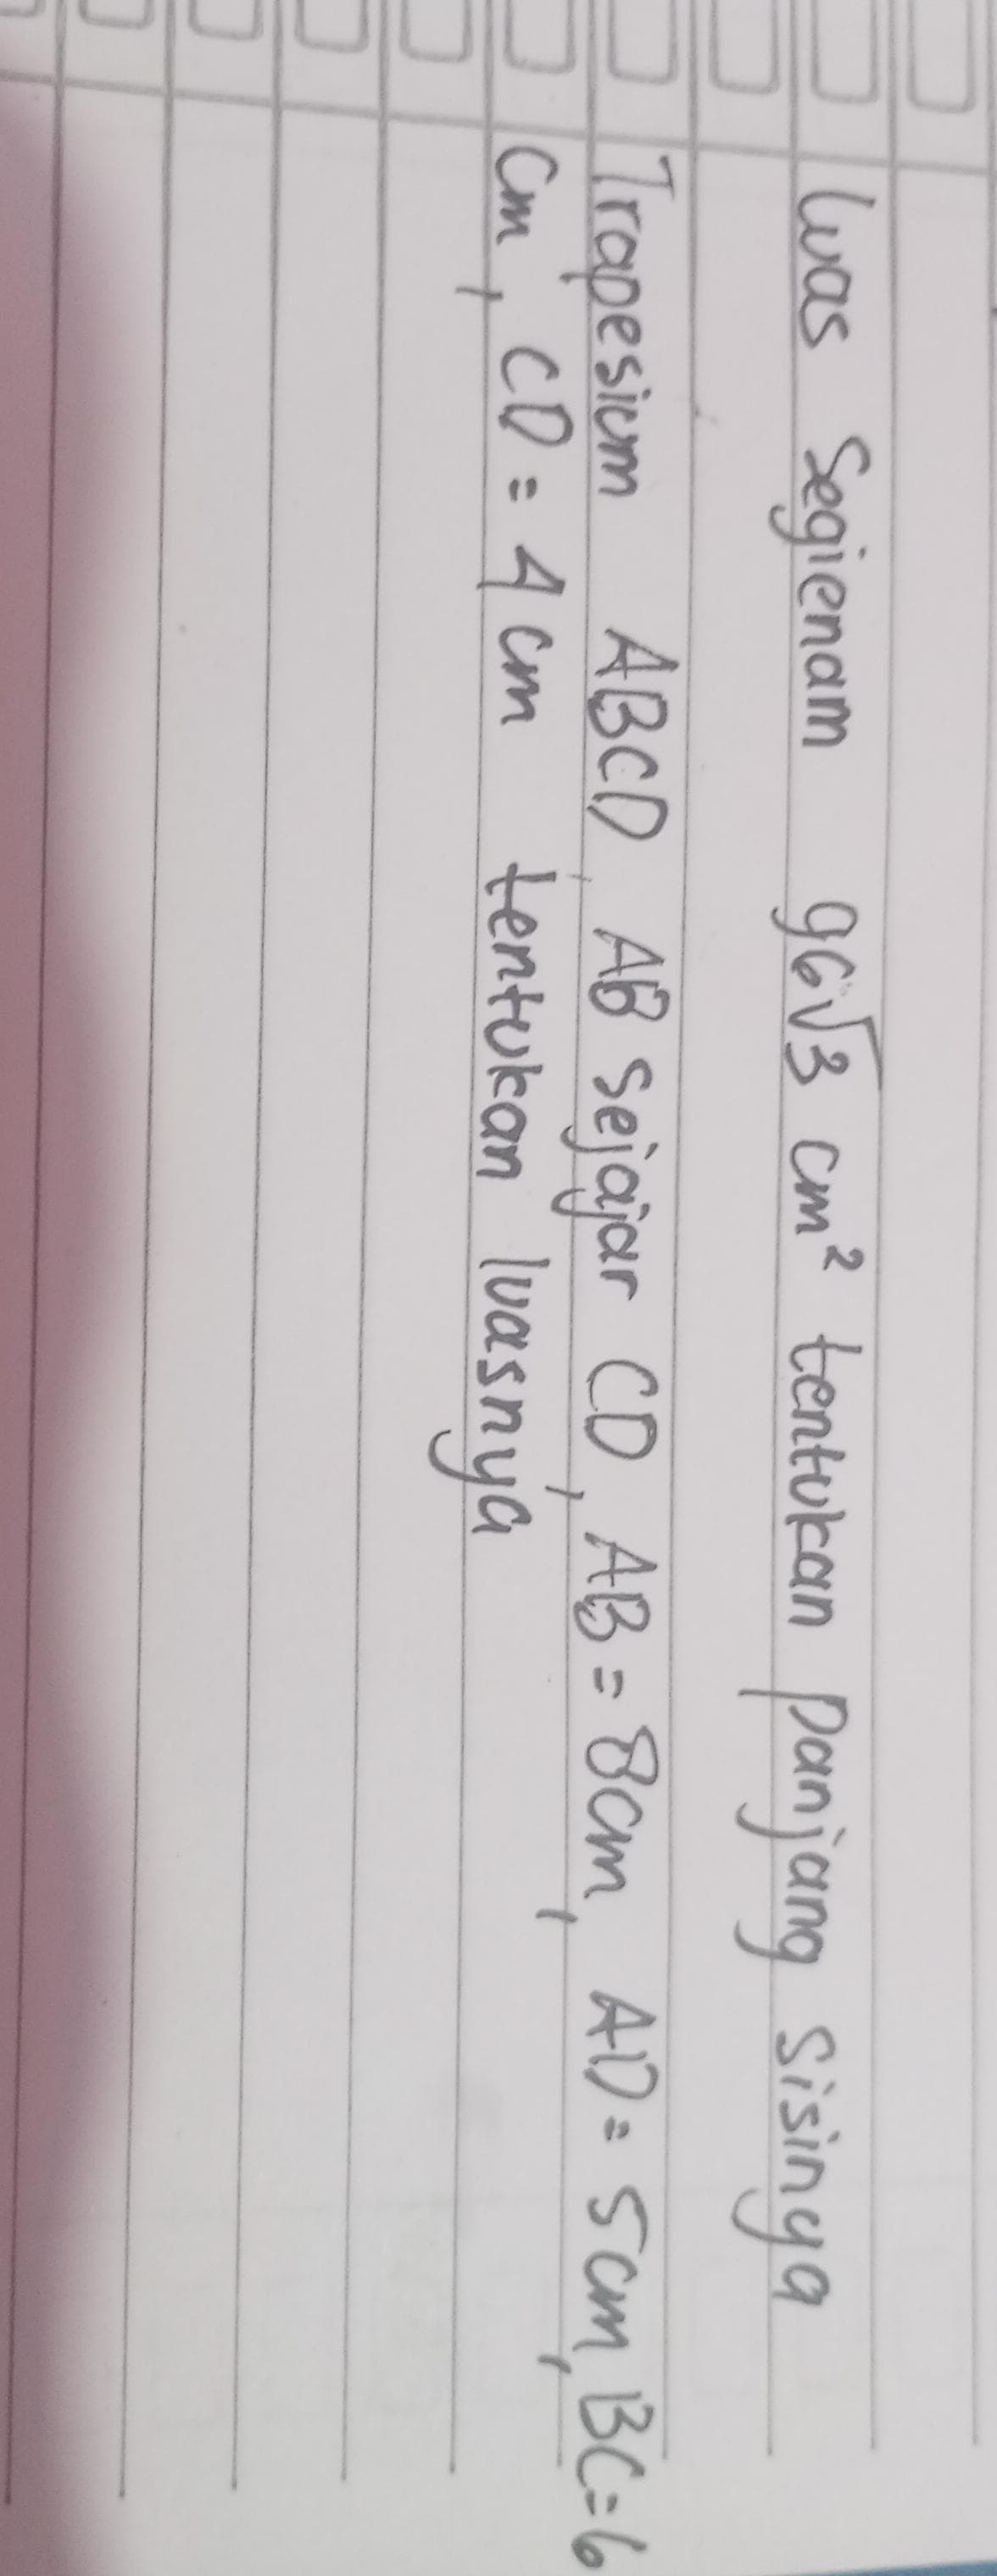 Luas Segienam 96√3 cm² tentukan panjang sisinya
Trapesium ABCD, AB sejajar CD, AB = 8cm, AD = 5cm, BC = 6
cm, CD = 4 cm tentukan luasnya